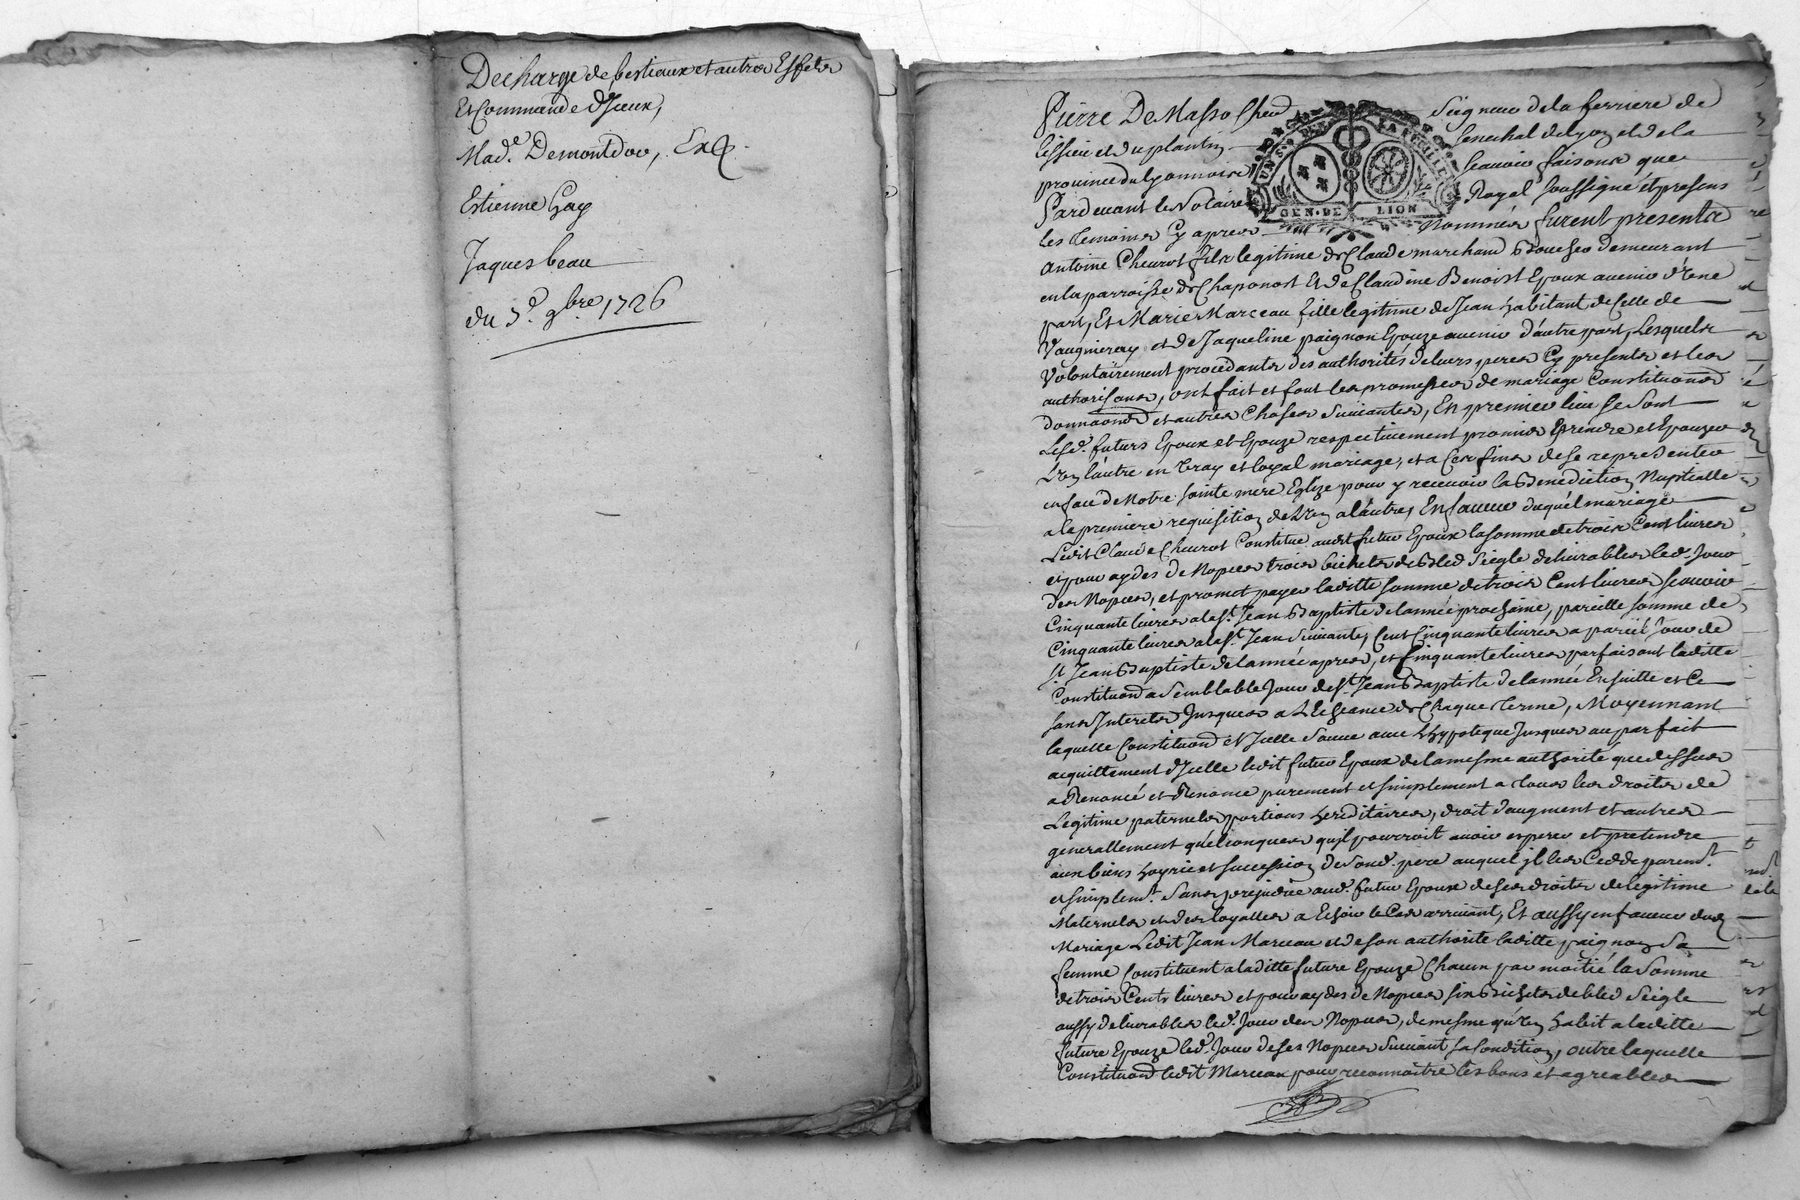 Decharge de bestiaux et autres Effets
Et Commande d'Iceux,
Mad.e Demontdor, Ex
Estienne Gay
Jaques beau
du 3.e 9bre 1726
Pierre De Masso Cheu Seigneur de la ferriere de
Lissieu et du plantin Senechal de Lyon et de la
prouince du Lyonnois Scauoir faisons que
Pardeuant le Notaire Royal soussigné et presens
UN S. DIX LA FEUILLE
GEN. DE LION
les temoins Cy apres Nommés furent presents
Antoine Cheurot fils legitime de Claude marchand Boucher demeurant
en la parroisse de Chaponost Et de Claudine Benoist Epoux auenir d'Vne
part, Et Marie Marceau fille legitime de Jean habitant de Celle de
Vaugneray et de Jaqueline paignon Epouze auenir d'autre part, Lesquels
Volontairement procedants des authorités de leurs peres Cy presents et les
authorisans, ont fait et font les promesses de mariage Constitutions
donnaons et autres Choses Suiuantes, En premier lieu se sont
Lesd. futurs Epoux et Epouze respectiuement promis Eprendre et Epouzer
L'vn l'autre en Vray et loyal mariage, et a Ces fins de se representer
en face de Notre Sainte mere Eglize pour y receuoir la Benediction Nuptialle
a la premiere requisition de L'vn a l'autre, En faueur duquel mariage
Ledit Claude Cheurot Constitue audit futur Epoux la somme de trois Cent liures
et pour aydes de Nopces trois bichets de Bled Seigle deliurables led. Jour
des Nopces, et promet payer laditte somme de trois Cent liures scauoir
Cinquante liures a la St. Jean Baptiste de l'année prochaine, pareille somme de
Cinquante liures a la St. Jean Suiuante, Cent Cinquante liures a pareil Jour de
St. Jean Baptiste de l'année apres, et Cinquante liures parfaisant laditte
Constituon a Semblable Jour de St. Jean Baptiste de l'année Ensuitte et Ce
sans Interets Jusques a L'Echeance de Chaque terme, Moyennant
laquelle Constituon et Icelle Sauue auec L'hypoteque Jusques au parfait
acquittement d'Icelle ledit futur Epoux de la mesme authorité que dessus
a Renoncé et Renonce purement et simplement a tous les droits de
Legitime paternels portions hereditaires, droit d'augment et autres
generallement quelconques qu'il pourroit auoir esperer et pretendre
aux biens hoyrie et succession de Sond. pere auquel il les Cedde purem.t
et simplem.t Sans prejudice aud. futur Epoux de ses droits de legitime
Maternels et des loyalles a Echoir le Cas arriuant, Et aussy en faueur dud.
Mariage Ledit Jean Marceau et de son authorité laditte paignon Sa
femme Constituent a laditte future Epouze Chacun par moitié la Somme
de trois Cents liures et pour aydes de Nopces six Bichets de bled Seigle
aussy deliurables led. Jour des Nopces, de mesme qu'vn habit a laditte
future Epouze led. Jour de ses Nopces Suiuant sa Condition, outre laquelle
Constituon ledit Marceau pour reconnoitre les bons et agreables